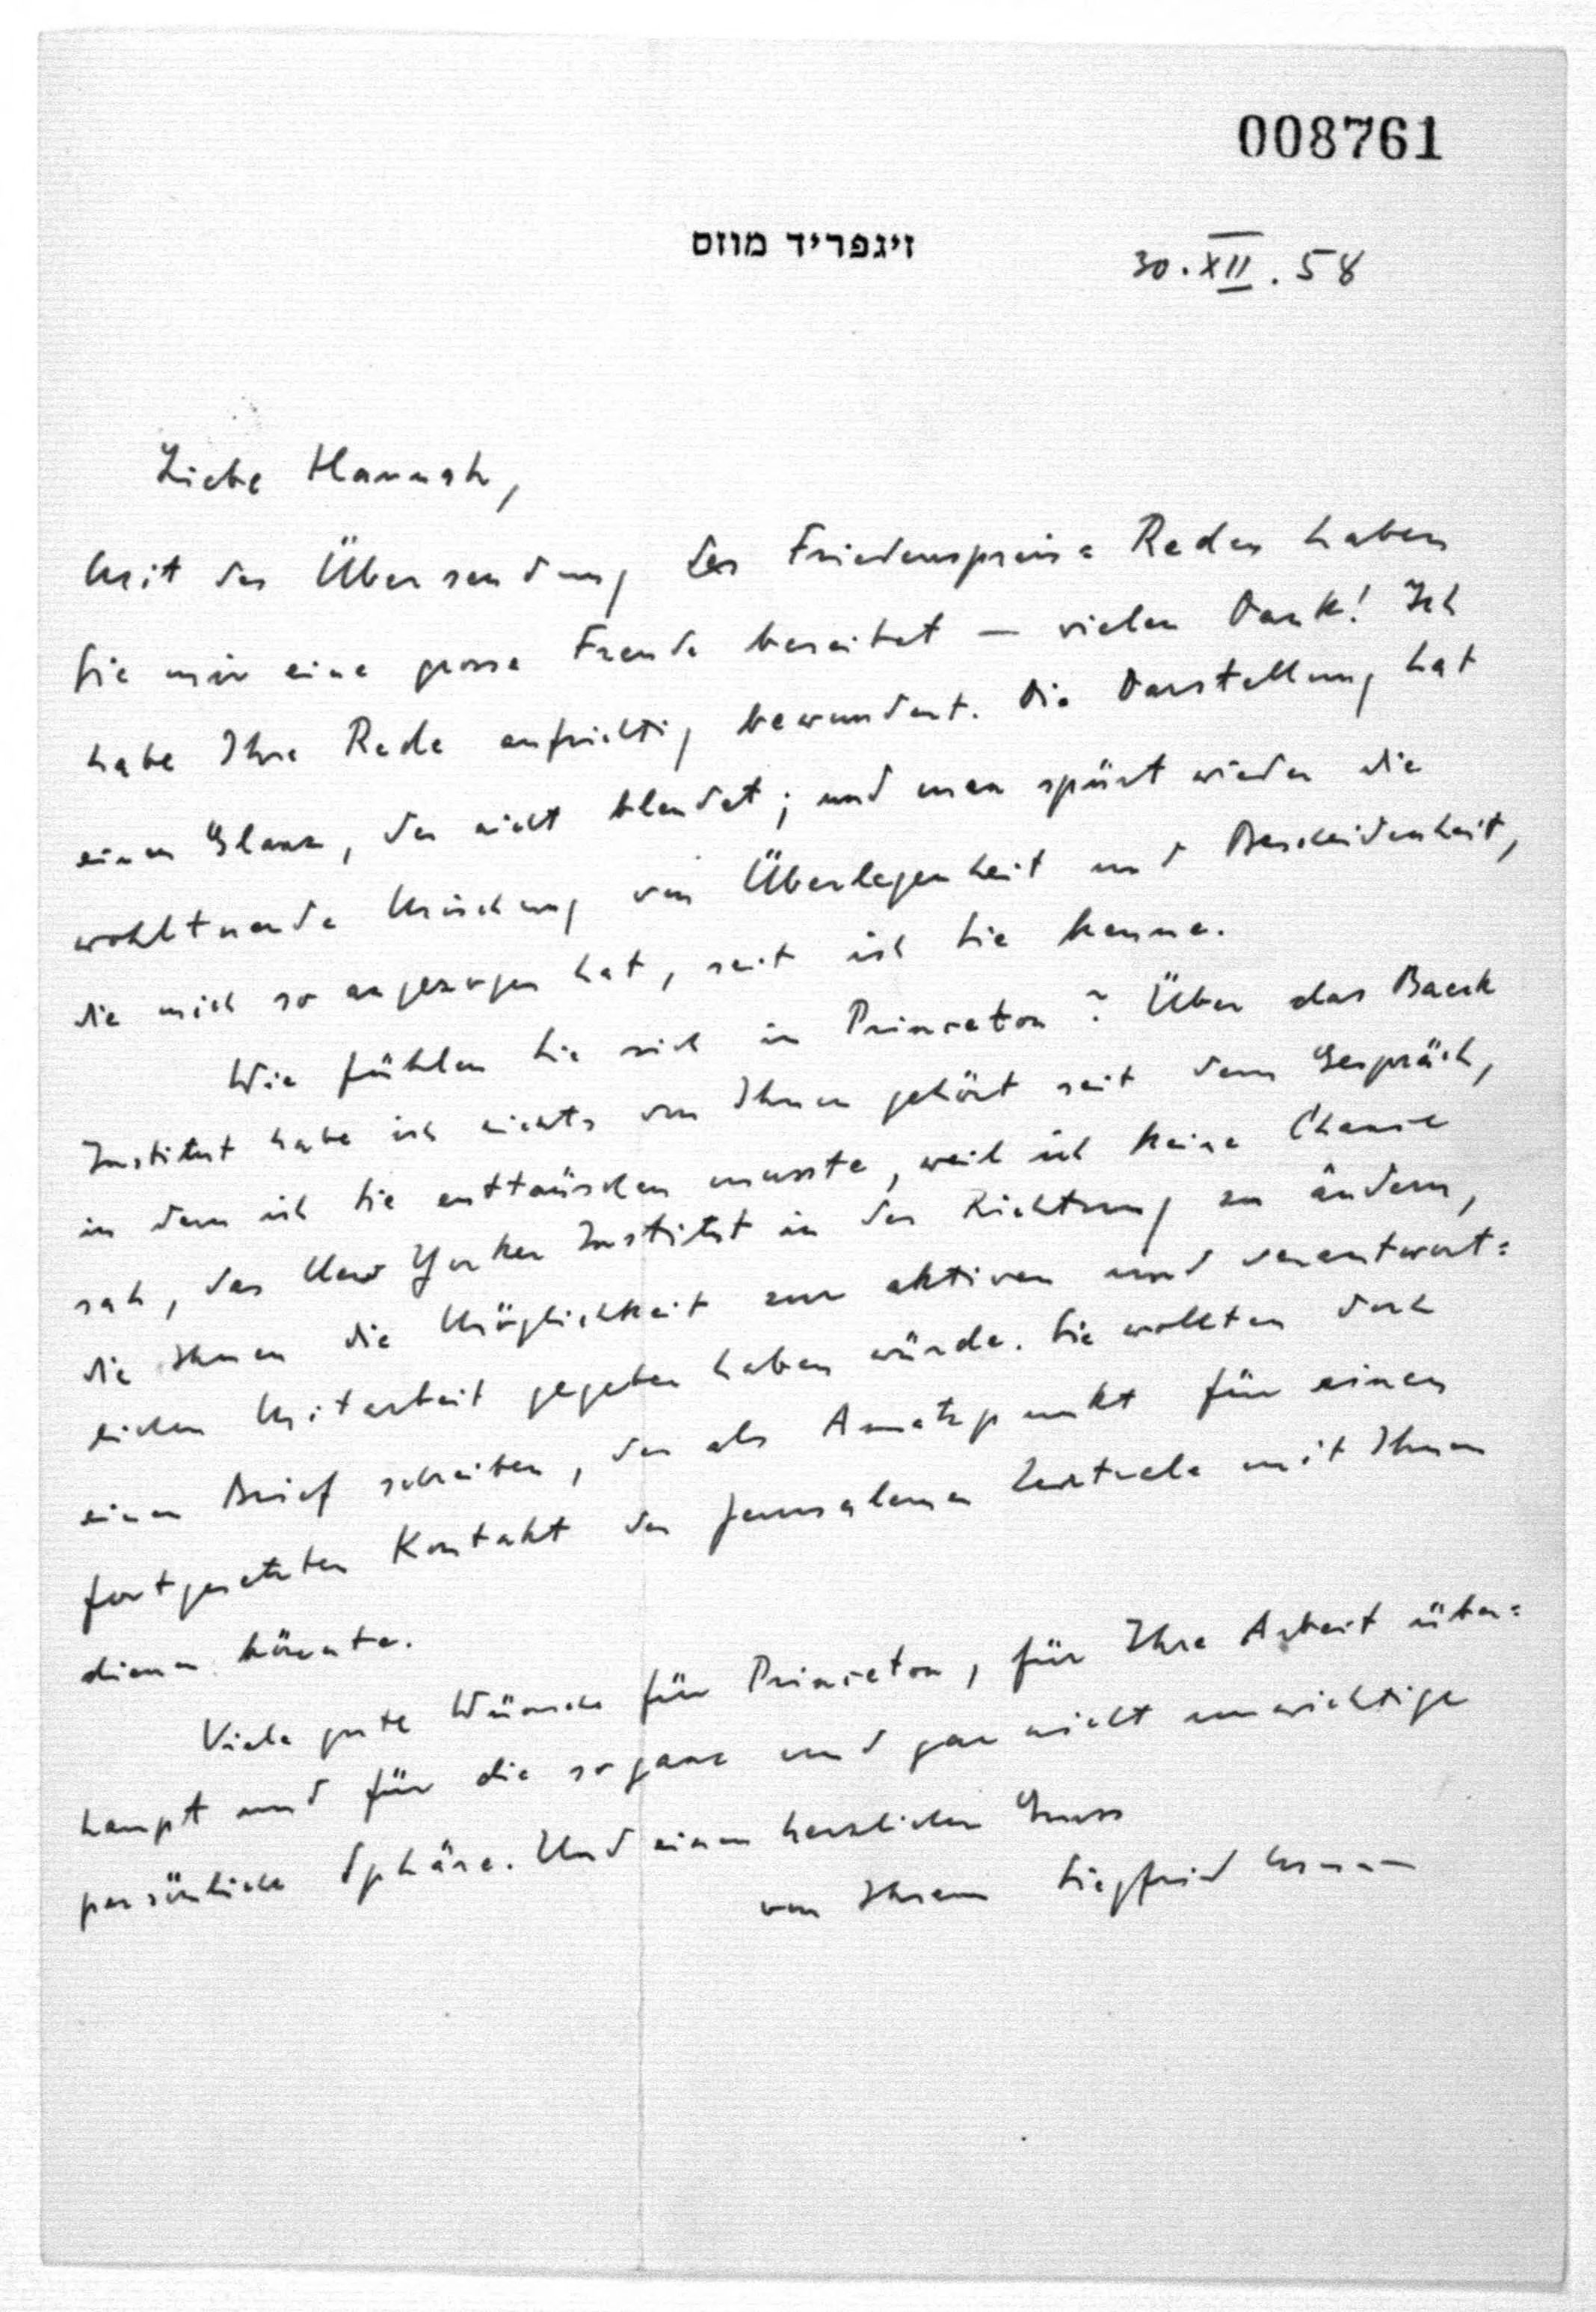 008761
זיגפריד מוזס
30.XII.58
Liebe Hannah,
Mit der Übersendung der Friedenspreis= Reden haben
Sie mir eine grosse Freude bereitet — vielen Dank! Ich
habe Ihre Rede aufrichtig bewundert. Die Darstellung hat
einen Glanz, der nicht blendet; und man spürt wieder die
wohltuende Mischung von Überlegenheit und Bescheidenheit,
die mich so angezogen hat, seit ich Sie kenne.
Wie fühlen Sie sich in Princeton? Über das Baeck
Institut habe ich nichts von Ihnen gehört seit dem Gespräch,
in dem ich Sie enttäuschen musste, weil ich keine Chance
sah, das New Yorker Institut in der Richtung zu ändern,
die Ihnen die Möglichkeit zur aktiven und verantwort=
lichen Mitarbeit gegeben haben würde. Sie wollten doch
einen Brief schreiben, der als Ansatzpunkt für einen
fortgesetzten Kontakt der Jerusalemer Zentrale mit Ihnen
dienen könnte.
Viele gute Wünsche für Princeton, für Ihre Arbeit über=
haupt und für die so ganz und gar nicht unwichtige
persönliche Sphäre. Und einen herzlichen Gruss
von Ihrem Siegfried Moses